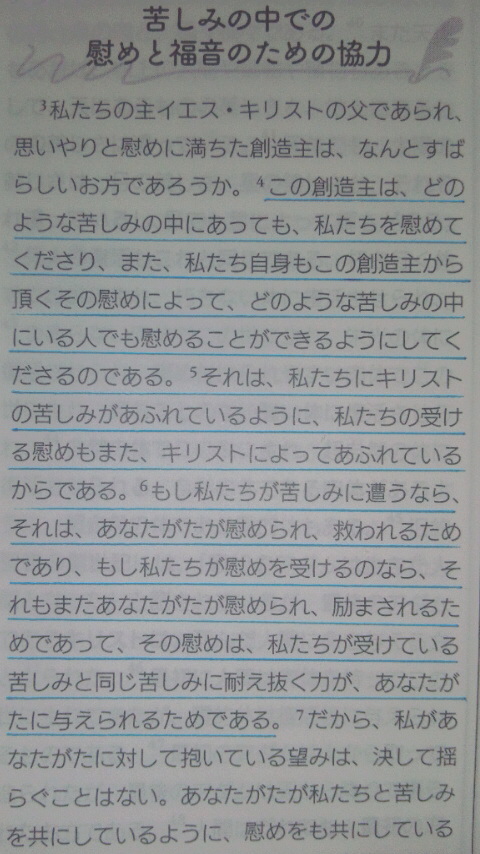 苦しみの中での
慰めと福音のための協力
3私たちの主イエス・キリストの父であられ、
思いやりと慰めに満ちた創造主は、なんとすば
らしいお方であろうか。4この創造主は、どの
ような苦しみの中にあっても、私たちを慰めて
くださり、また、私たち自身もこの創造主から
頂くその慰めによって、どのような苦しみの中
にいる人でも慰めることができるようにしてく
ださるのである。5それは、私たちにキリスト
の苦しみがあふれているように、私たちの受け
る慰めもまた、キリストによってあふれている
からである。6もし私たちが苦しみに遭うなら、
それは、あなたがたが慰められ、救われるため
であり、もし私たちが慰めを受けるのなら、そ
れもまたあなたがたが慰められ、励まされるた
めであって、その慰めは、私たちが受けている
苦しみと同じ苦しみに耐え抜く力が、あなたが
たに与えられるためである。7だから、私があ
なたがたに対して抱いている望みは、決して揺
らぐことはない。あなたがたが私たちと苦しみ
を共にしているように、慰めをも共にしている